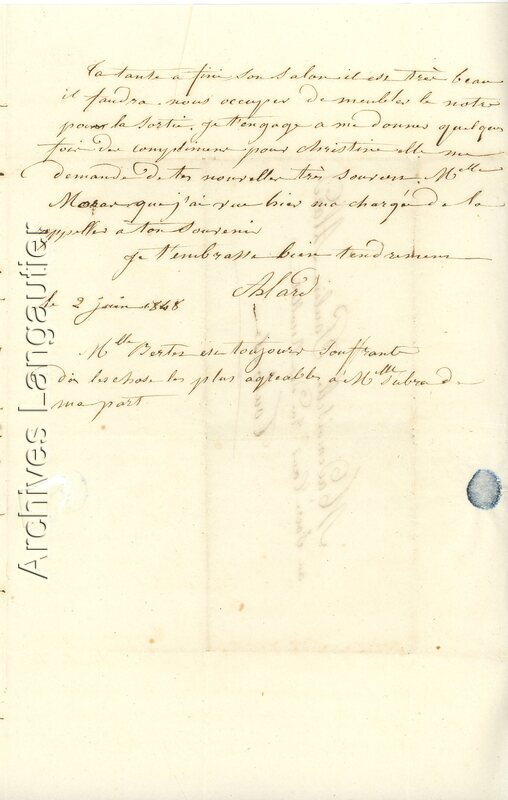 Ta tante a fini son salon il est très beau
il faudra nous occuper de meubler le notre
pour la sortie. je t'engage a me donner quelque
fois des complimens pour Christine elle me
demande de tes nouvelles très souvent. Mlle
que j'ai vue hier ma chargée de la
rappeller à ton souvenir
je t'embrasse bien tendrement
Alard
le 2 juin 1848
Mlle Bertes est toujours souffrante
dis les chose les plus agreables à Mlle Subra de
ma part
Archives Langautier